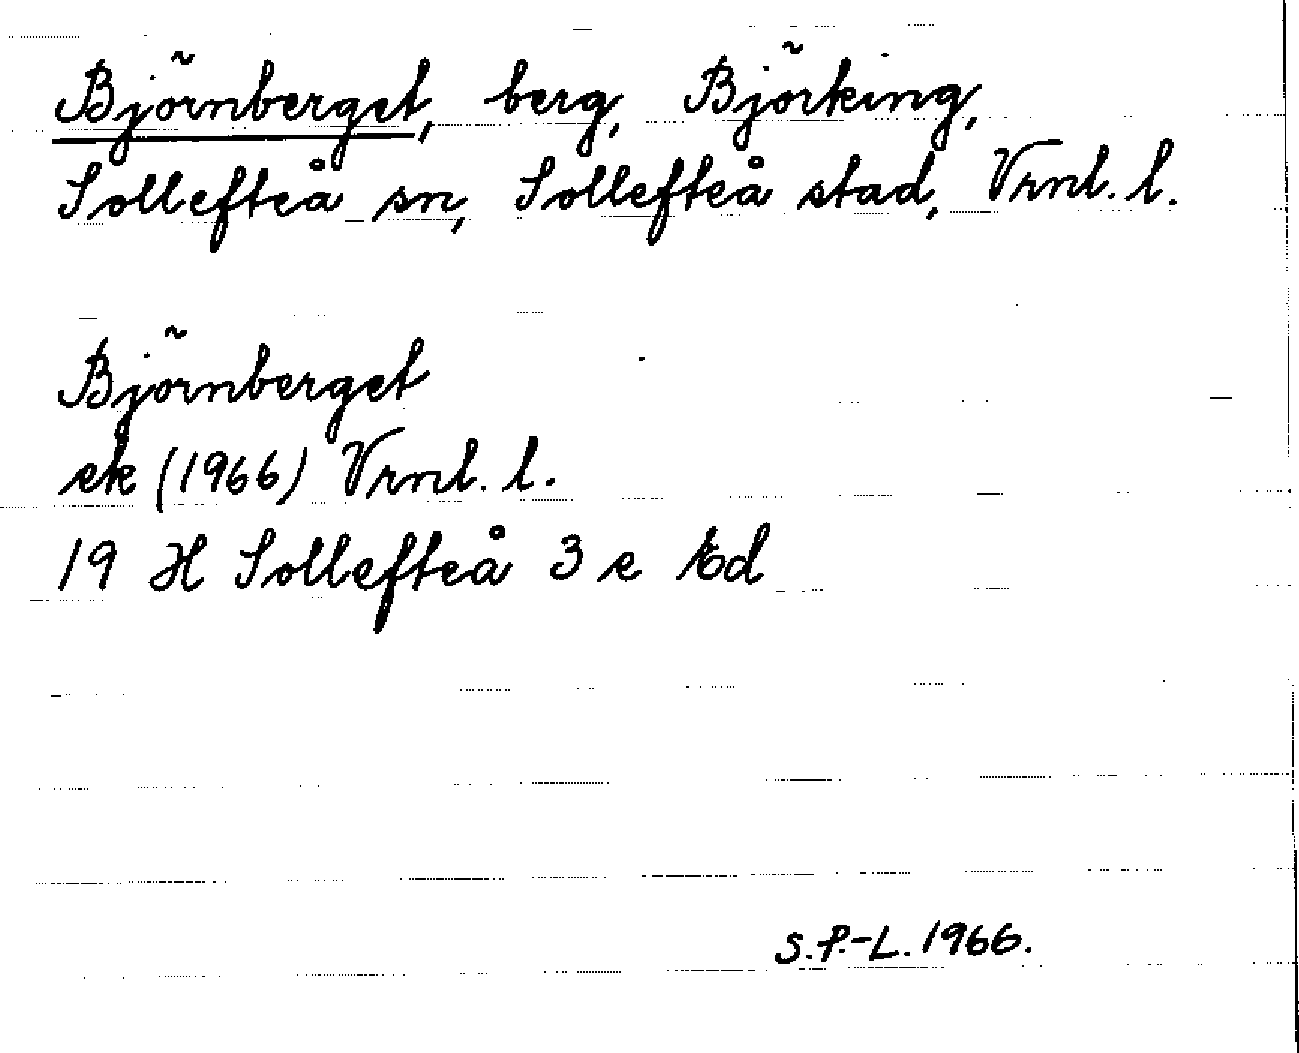 Björnberget, berg, Björking,
Sollefteå sn, Sollefteå stad, Vrnl. l.
Björnberget
ek (1966) Vrnl. l.
19 H Sollefteå 3 e Ed
S.P.-L. 1966.